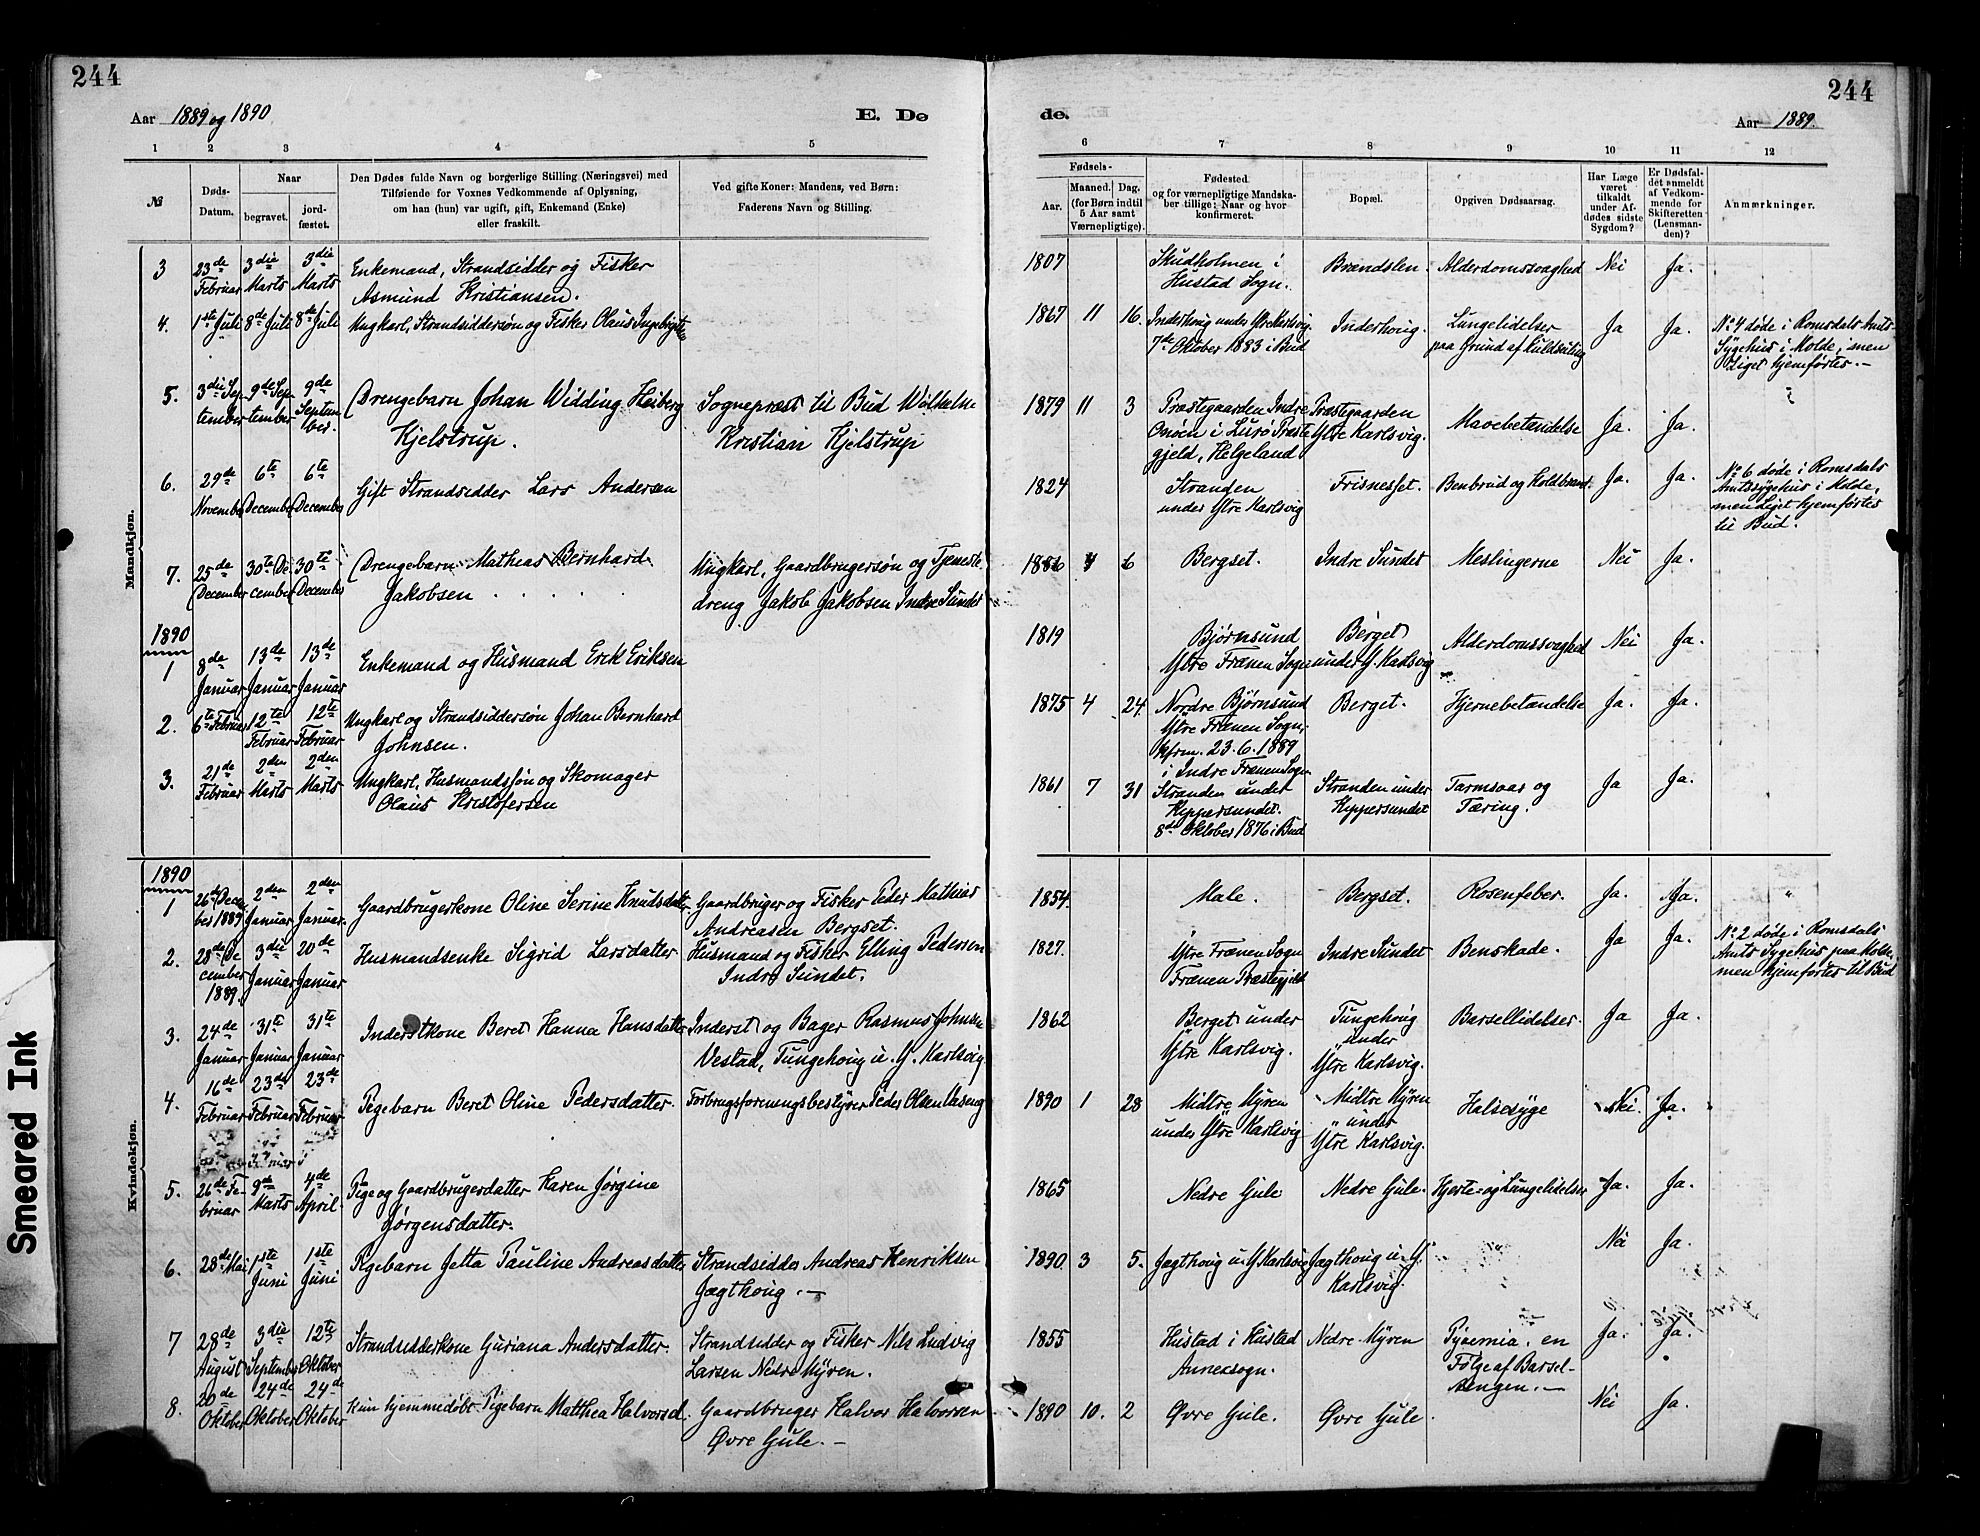 244
244
Aar 1889 og 1890
E. Dø
de.
Aar 1889.
1 2 3 4 5
6 7 8 9 10 11 12
№
Døds-
Datum.
Naar
begravet.
jord-
fæstet.
Den Dødes fulde Navn og borgerlige Stilling (Næringsvei) med
Tilføiende for Voxnes Vedkommende af Oplysning,
om han (hun) var ugift, gift, Enkemand (Enke)
eller fraskilt.
Ved gifte Koner: Mandens, ved Børn:
Faderens Navn og Stilling.
Fødsels-
Aar.
Maaned.
Dag.
(for Børn indtil
5 Aar samt
Værnepligtige).
Fødested
og for værnepligtige Mandska-
ber tillige: Naar og hvor
konfirmeret.
Bopæl.
Opgiven Dødsaarsag.
Har Læge
været
tilkaldt
under Af-
dødes sidste
Sygdom?
Er Dødsfal-
det anmeldt
af Vedkom-
mende for
Skifteretten
(Lensman-
den)?
Anmærkninger.
Mandkjøn.
3 23de Februar 3die Marts 3die Marts
Enkemand, Strandsidder og Fisker
Asmund Kristiansen.
1807
Skudholmen i
Hustad Sogn.
Brandslen. Alderdomssvaghed Nei Ja.
4. 1ste Juli 8de Juli 8de Juli
Ungkarl, Strandsiddersøn og Fisker Olaus Ingebrigts
1867 11 16.
Inderhoug under Ytre Karlsvig.
7de Oktober 1883 i Bud
Inderhoug.
Lungelidelser
paa Grund af Kuldseiling
Ja Ja.
No 4 døde i Romsdals Amts
Sygehus i Molde, men
Liget hjemførtes. —
5. 3die September 9de September 9de September.
Drengebarn Johan Widding Heiberg
Kjelstrup.
Sognepræst til Bud Wilhelm
Kristian Kjelstrup
1879 11 3
Præstegaarden Indre
Onøen i Lurø Præste
gjeld, Helgeland
Præstegaarden
Ytre Karlsvig.
Mavebetændelse Ja. Ja.
6. 29de November 6te December 6te December
Gift Strandsidder Lars Andersen
1824
Stranden
under Ytre Karlsvig
Frisnesset. Benbrud og Koldbrand. Ja. Ja.
No 6 døde i Romsdals
Amtssygehus i Molde,
men Liget hjemførtes
til Bud.
7. 25de December 30te December 30te December
Drengebarn Mathias Bernhard
Jakobsen
Ungkarl, Gaardbrugersøn og Tjeneste
dreng Jakob Jakobsen Indre Sundet
1886 6
Bergset. Indre Sundet Meslingerne Nei Ja.
1890
1 8de Januar 13de Januar 13de Januar
Enkemand og Husmand Erik Eriksen
1819
Bjørnsund
Ytre Frænen Sogn
Berget
under Y. Karlsvig
Alderdomssvaghed Nei Ja.
2. 6te Februar 12te Februar 12te Februar
Ungkarl og Strandsiddersøn Johan Bernhard
Johnsen.
1875 4 24.
Nordre Bjørnsund
Ytre Frænen Sogn,
kfrm. 23.6.1889
i Indre Frænen Sogn
Berget. Hjernebetændelse Ja. Ja.
3. 21de Februar 2den Marts 2den Marts
Ungkarl, Husmandssøn og Skomager
Olaus Kristofersen
1861 7 31
Stranden under
Kippersundet.
8de Oktober 1876 i Bud
Stranden under
Kippersundet
Tarmsaar og
Tæring.
Ja Ja.
Kvindekjøn.
1890
1 26de December 1889 2den Januar 2den Januar.
Gaardbrugerkone Oline Serine Knudsdatter
Gaardbruger og Fisker Peder Mathias
Andreasen Bergset.
1854.
Male. Bergset. Rosenfeber. Ja. Ja. "
2. 28de December 1889. 3die Januar 20de Januar
Husmandsenke Sigrid Larsdatter
Husmand og Fisker Elling Pedersen
Indre Sundet.
1827.
Ytre Frænen Sogn
Frænen Præstegjeld
Indre Sundet Benskade. Ja Ja.
No 2 døde i Romsdals
Amts Sygehus paa Molde,
men hjemførtes til Bud
3. 24de Januar 31te Januar 31te Januar
Inderstkone Beret Hanna Hansdatter
Inderst og Bager Rasmus Johnsen
Vestad, Tungehoug u. Y. Karlsvig
1862
Berget under
Ytre Karlsvig.
Tungehoug
under
Ytre Karlsvig.
Barsellidelser. Ja Ja.
4. 16de Februar 23de Februar 23de Februar
Pigebarn Beret Oline Pedersdatter.
Forbrugsforeningsbestyrer Peder Olsen
1890 1 28
Midtre Myren
under Ytre Karlsvig
Midtre Myren
under
Ytre Karlsvig.
Halsesyge Nei. Ja.
5. 26de Februar 9de Marts 4de April.
Pige og Gaardbrugerdatter Karen Jørgine
Jørgensdatter.
1865
Nedre Gule Nedre Gule. Hjerte- og Lungelidelser Ja. Ja.
6. 28de Mai 1ste Juni 1ste Juni
Pigebarn Jetta Pauline Andreasdatter
Strandsidder Andreas Henriksen
Jagthoug. —
1890 3 5.
Jagthoug u. Y Karlsvig
Jagthoug u. Y.
Karlsvig.
Nei Ja.
7 28de August 3die September 12te Oktober
Strandsidderkone Guriana Andersdatter.
Strandsidder og Fisker Nils Ludvig
Larsen Nedre Myren.
1855
Hustad i Hustad
Annexsogn.
Nedre Myren
Pyæmia, en
Følge af Barsel-
sengen. —
Ja. Ja.
8. 20de Oktober 24de Oktober 24de Oktober
Kun hjemmedøbt Pigebarn Matthea Halvorsd.
Gaardbruger Halvor Halvorsen
Øvre Gule. —
1890 10. 2
Øvre Gule. Øvre Gule. Nei Ja.
Smeared Ink